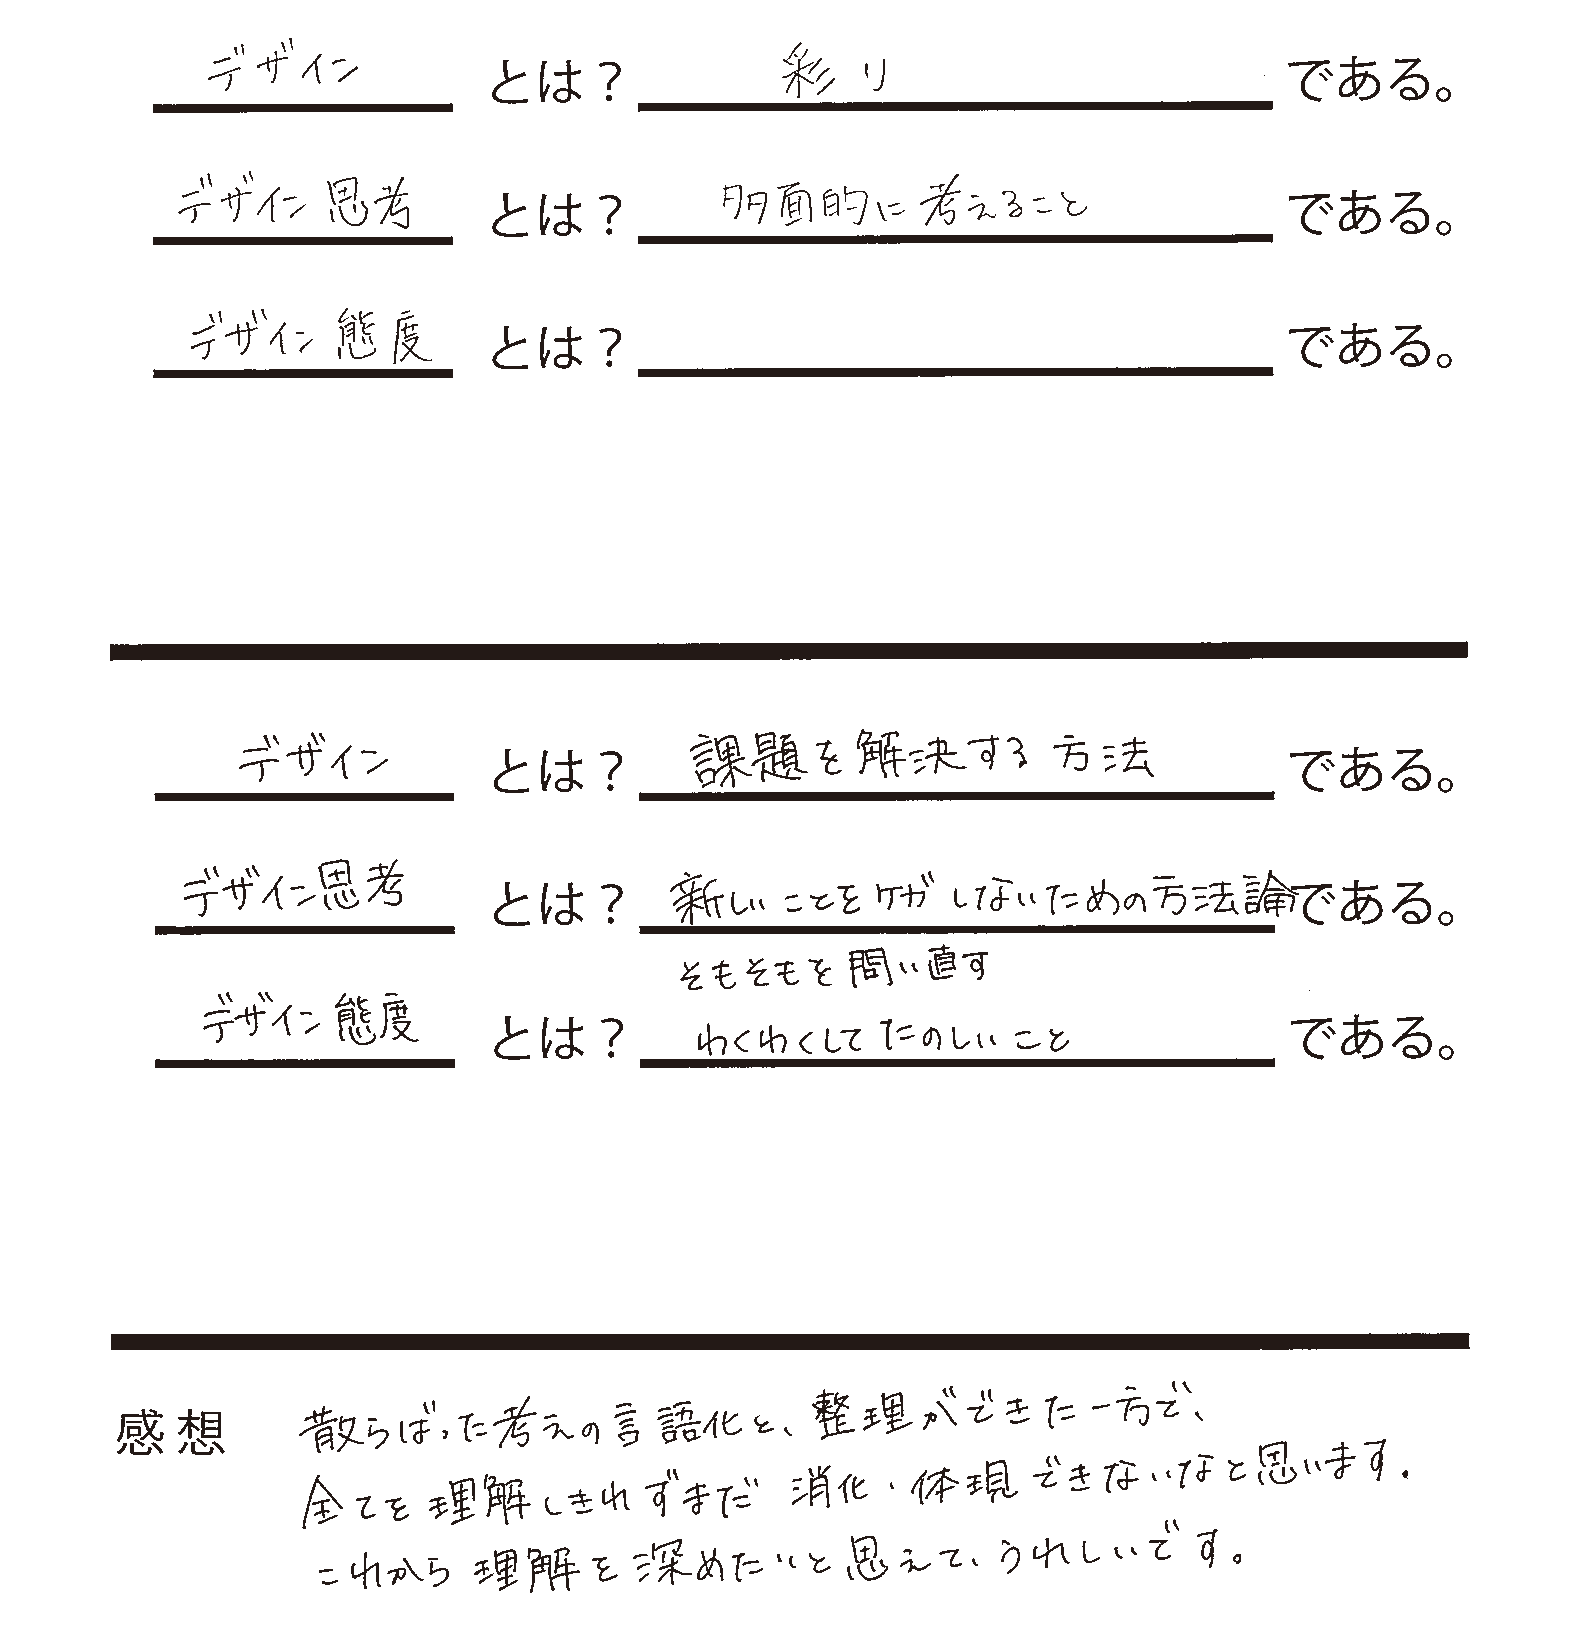 デザイン とは? 彩り である。
デザイン思考 とは? 多面的に考えること である。
デザイン態度 とは? である。
デザイン とは? 課題を解決する方法 である。
デザイン思考 とは? 新しいことをケガしないための方法論 である。
そもそもを問い直す
デザイン態度 とは? わくわくしてたのしいこと である。
感想 散らばった考えの言語化と、整理ができた一方で、
全てを理解しきれずまだ消化・体現できないなと思います.
これから理解を深めたいと思えて、うれしいです。